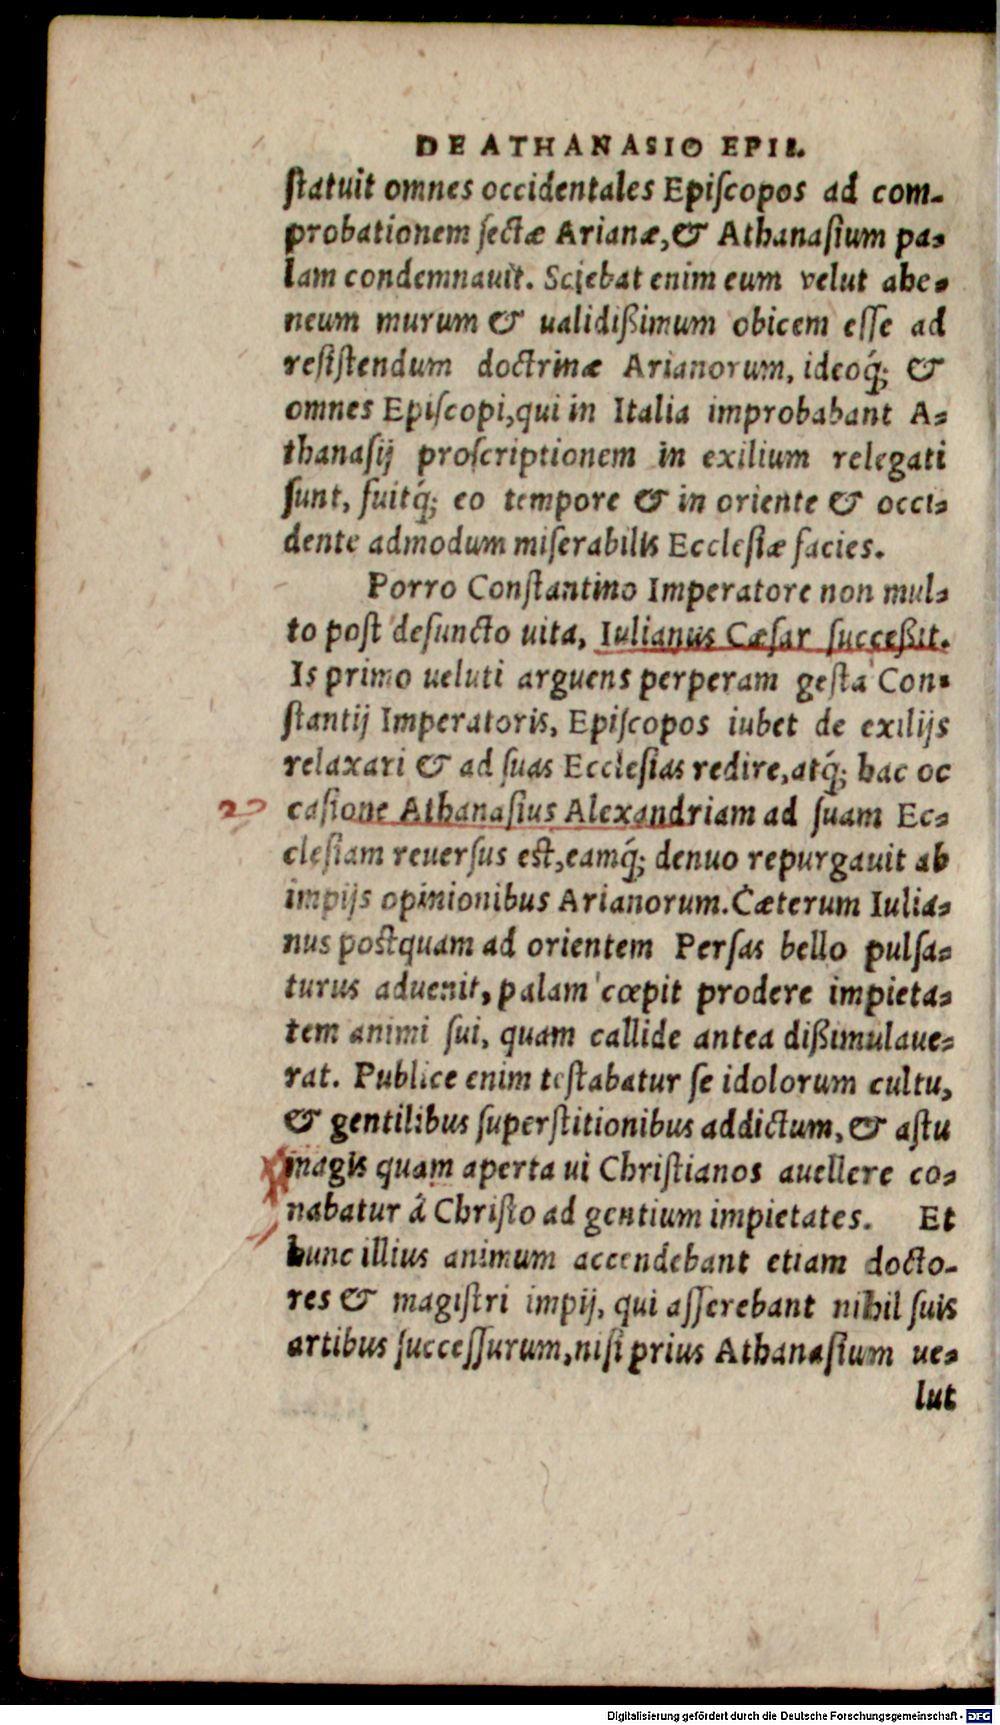 DE ATHANASIO EPIS.
ſtatuit omnes occidentales Epiſcopos ad com-
probationem ſectæ Arianæ, & Athanaſium pa-
lam condemnauit. Sciebat enim eum velut ahe-
neum murum & ualidißimum obicem eſſe ad
reſiſtendum doctrinæ Arianorum, ideoq́; &
omnes Epiſcopi, qui in Italia improbabant A-
thanaſij proſcriptionem in exilium relegati
ſunt, fuitq́; eo tempore & in oriente & occi-
dente admodum miſerabilis Eccleſiæ facies.
Porro Conſtantino Imperatore non mul-
to poſt defuncto uita, Iulianus Cæſar ſucceßit.
Is primo ueluti arguens perperam geſta Con-
ſtantij Imperatoris, Epiſcopos iubet de exilijs
relaxari & ad ſuas Eccleſias redire, atq́; hac oc
caſione Athanaſius Alexandriam ad ſuam Ec-
cleſiam reuerſus eſt, eamq́; denuo repurgauit ab
impijs opinionibus Arianorum. Cæterum Iulia-
nus poſtquam ad orientem Perſas bello pulſa-
turus aduenit, palam cœpit prodere impieta-
tem animi ſui, quam callide antea dißimulaue-
rat. Publice enim teſtabatur ſe idolorum cultu,
& gentilibus ſuperſtitionibus addictum, & aſtu
magis quam aperta ui Chriſtianos auellere co-
nabatur â Chriſto ad gentium impietates. Et
hunc illius animum accendebant etiam docto-
res & magiſtri impij, qui aſſerebant nihil ſuis
artibus ſucceſſurum, niſi prius Athanaſium ue-
lut
Digitalisierung gefördert durch die Deutsche Forschungsgemeinschaft - DFG